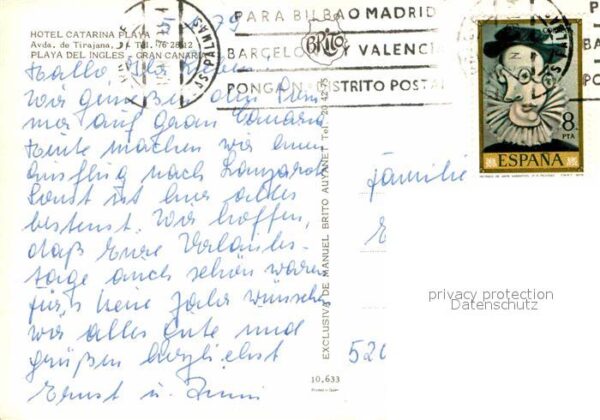 HOTEL CATARINA PLAYA
Avda. de Tirajana, 1 Tel. 76 28 12
PLAYA DEL INGLES - GRAN CANARIA
79
PARA BILBAO MADRID
BARCELONA Y VALENCIA
PONGAN DISTRITO POSTAL
LAS PALMAS
8
PTA
ESPAÑA
Hallo,
Wir grüßen
auf Gran Canaria
Heute machen wir einen
Ausflug nach Lanzarote
Sonst ist hier alles
bestens. Wir hoffen,
daß Eure Urlaubs-
tage auch schön waren
für's neue Jahr wünschen
wir alles Gute und
grüßen herzlichst
Ernst u.
EXCLUSIVA DE MANUEL BRITO AUYANET Tel. 20-42-75
10,633
Familie
E
520
privacy protection
Datenschutz